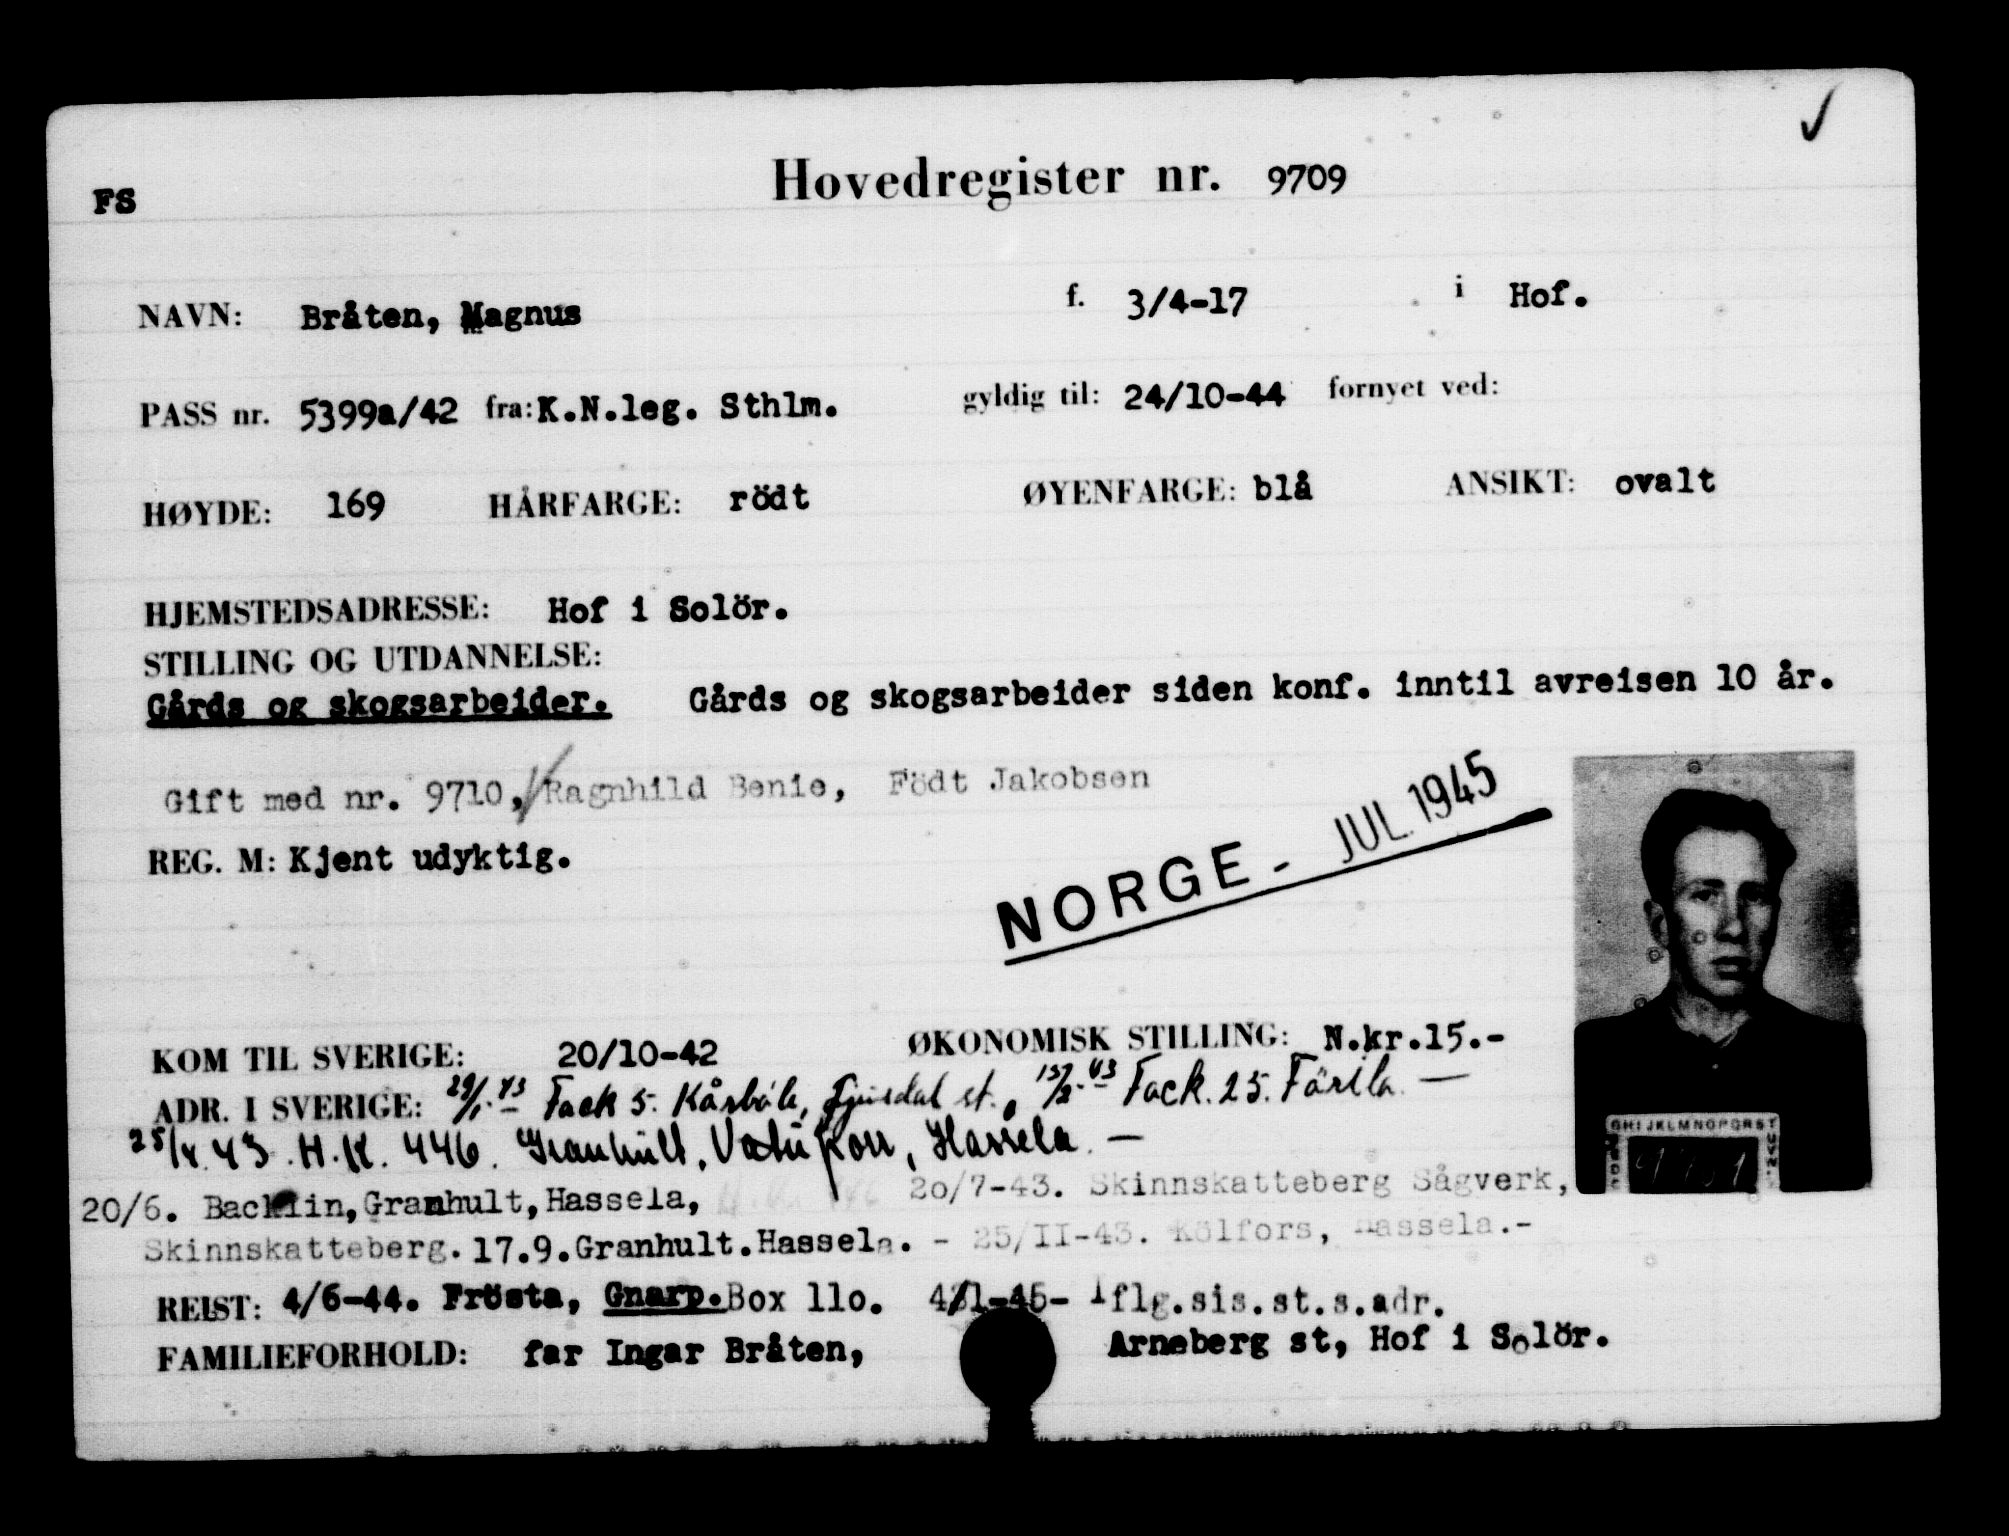 ✓
FS Hovedregister nr. 9709
NAVN: Bråten, Magnus f. 3/4-17 i Hof.
PASS nr. 5399a/42 fra: K.N.leg. Sthlm. gyldig til: 24/10-44 fornyet ved:
HØYDE: 169 HÅRFARGE: rödt ØYENFARGE: blå ANSIKT: ovalt
HJEMSTEDSADRESSE: Hof i Solör.
STILLING OG UTDANNELSE:
Gårds og skogsarbeider. Gårds og skogsarbeider siden konf. inntil avreisen 10 år.
Gift med nr. 9710, Ragnhild Benie, Födt Jakobsen
REG. M: Kjent udyktig.
NORGE - JUL. 1945
KOM TIL SVERIGE: 20/10-42 ØKONOMISK STILLING: N.kr.15.-
ADR. I SVERIGE: 29/1.43 Fack 5. Kårböle, st., 15/2.43 Fack. 25. Färila. —
25/4.43. H.K. 446. Granhult, Hassela. —
20/6. Backlin, Granhult, Hassela, 2o/7-43. Skinnskatteberg Sågverk,
Skinnskatteberg. 17.9. Granhult. Hassela. - 25/II-43. Kölfors, Hassela.-
REIST: 4/6-44. Frösta, Gnarp. Box llo. flg.sis.st.s.adr.
FAMILIEFORHOLD: far Ingar Bråten, Arneberg st, Hof i Solör.
GHIJKLMNOPQRST